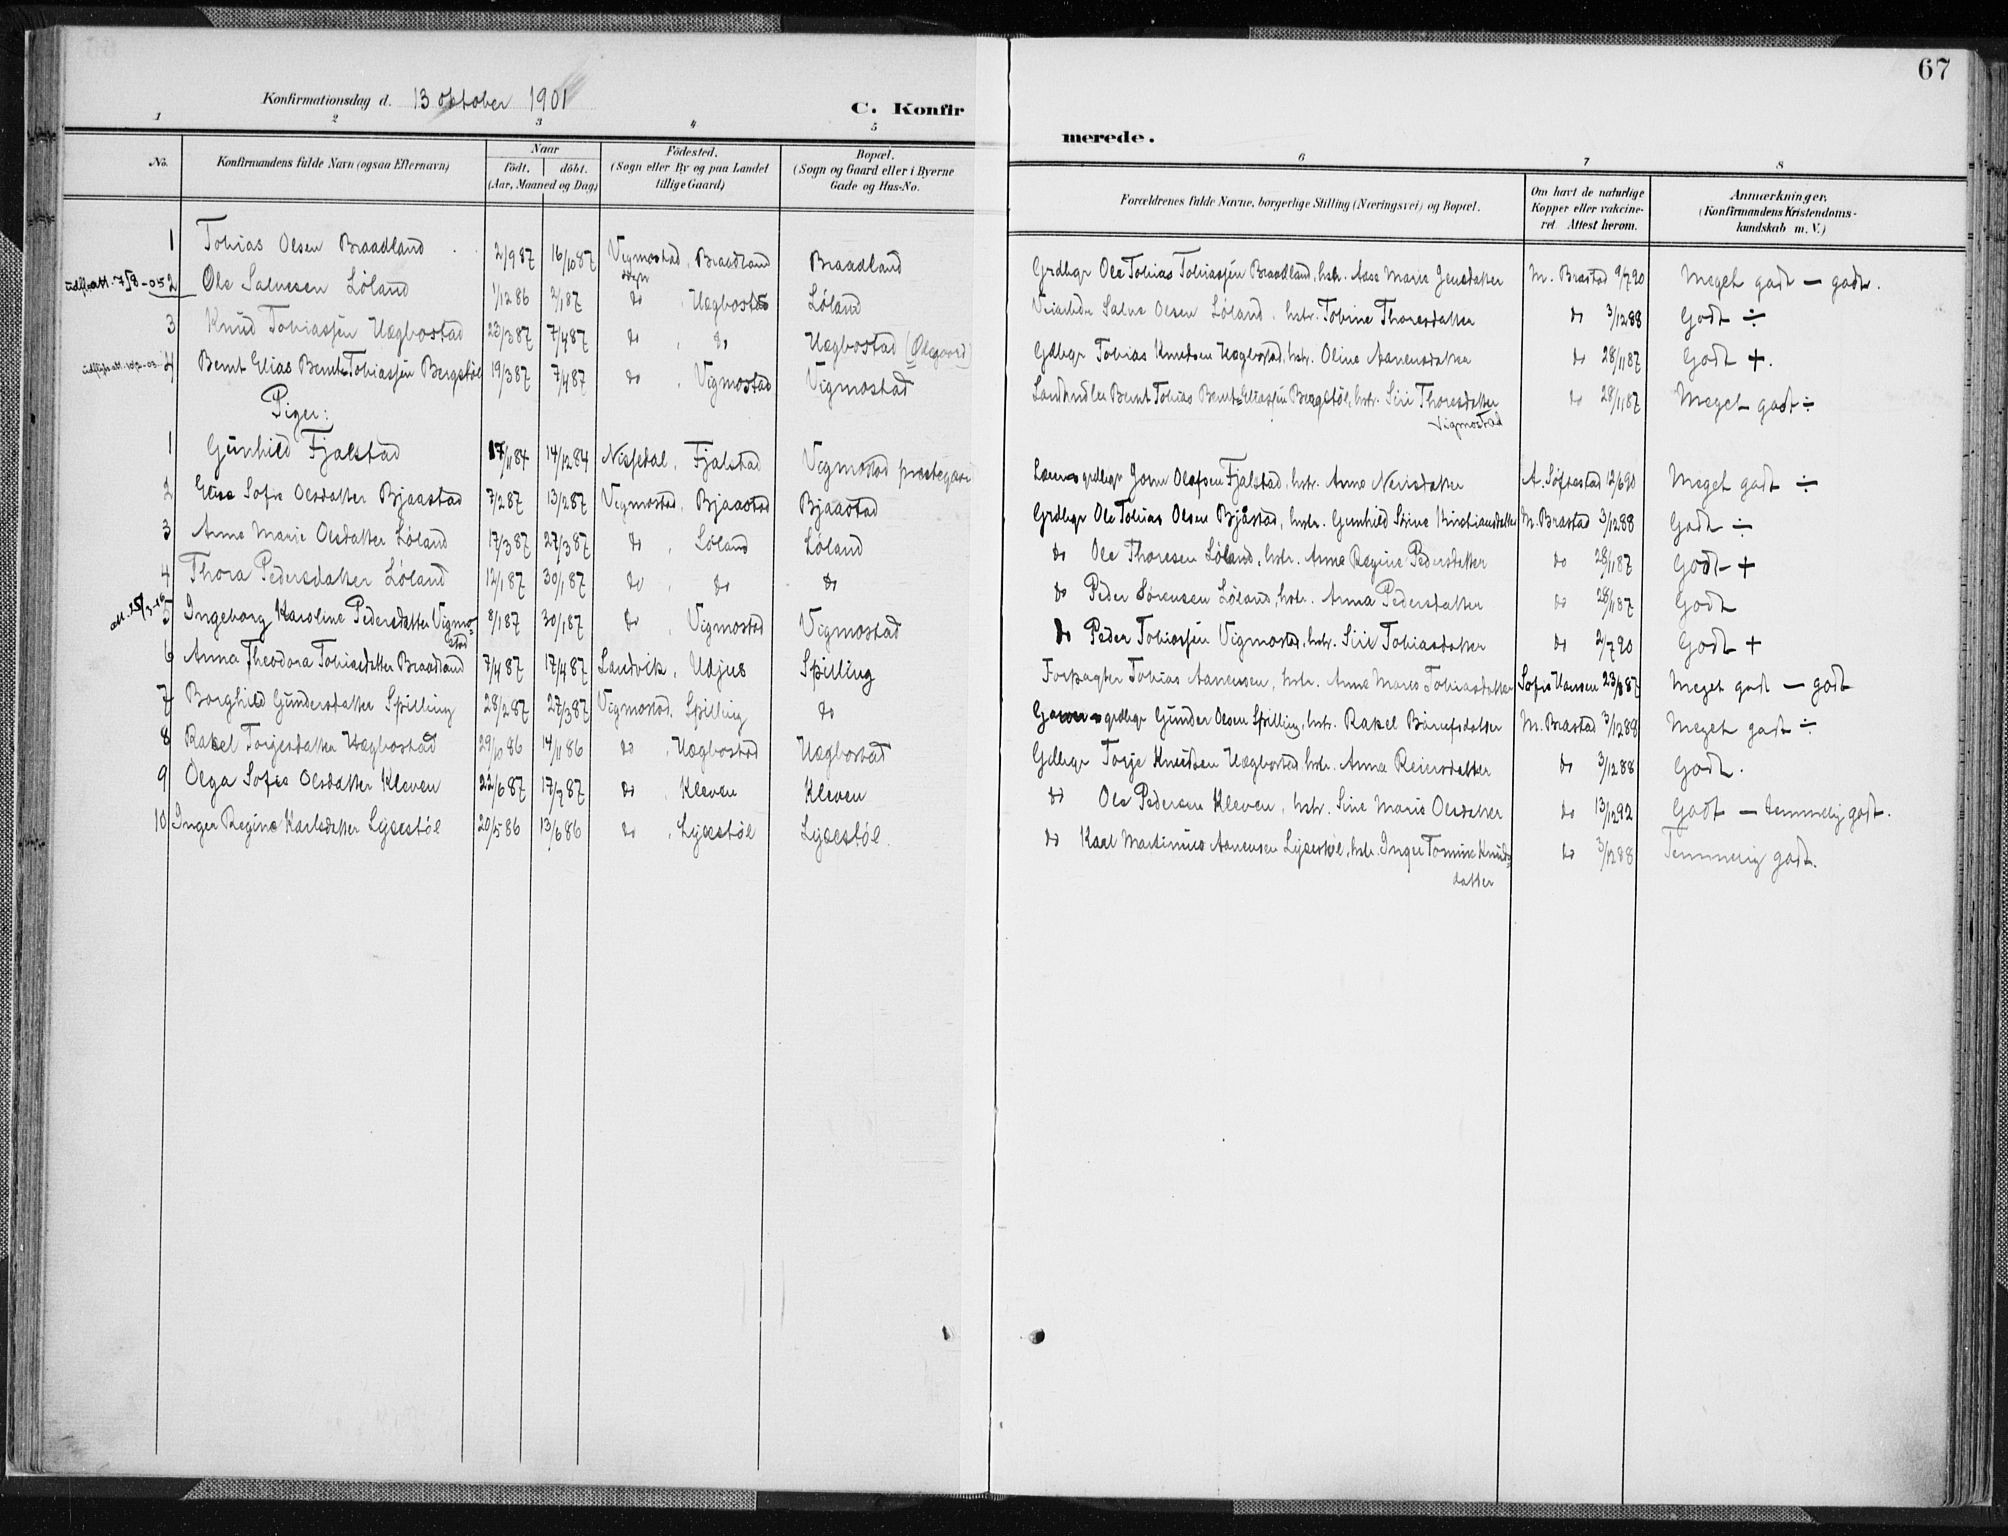 67
Konfirmationsdag d. 13 oktober 1901
C. Konfirmerede.
1 2 3 4 5 6 7 8
No. Konfirmandens fulde Navn (ogsaa Efternavn) Naar födt. döbt. (Aar, Maaned og Dag) Födested. (Sogn eller By og paa Landet tillige Gaard) Bopæl. (Sogn og Gaard eller i Byerne Gade og Hus-No. Forældrenes fulde Navne, borgerlige Stilling (Næringsvei) og Bopæl. Om havt de naturlige Kopper eller vakcineret Attest herom. Anmærkninger. (Konfirmandens Kristendomskundskab m. V.)
1 Tobias Olsen Braadland 2/9 87 16/10 87 Vigmostad, Braadland Braadland Grdbgr Ole Tobias Tobiassen Braadland, hstr. Aase Marie Jensdatter M. Brastad 9/7 90 Meget godt — godt.
udfl. att. 7/8-05 2 Ole Salvesen Löland 1/12 86 2/1 87 do, Uægbostad Löland Salve Olsen Löland, hstr. Tobine Thoresdatter do 3/12 88 Godt ÷
3 Knud Tobiassen Uægbostad 23/3 87 7/4 87 do, do Uægbostad (Ølegaard) Gdbgr Tobias Knudsen Uægbostad, hstr. Oline Aanensdatter do 28/11 87 Godt +.
4 Bernt Elias Bernt Tobiassen Bergstöl 19/3 87 7/4 87 do, Vigmostad Vigmostad Landhndler Bernt Tobias Bernt Eliassen Bergstöl, hstr. Siri Thoresdatter Vigmostad do 28/11 87 Meget godt ÷
Piger:
1 Gunhild Fjalstad 17/11 84 14/12 84 Nissedal, Fjalstad Vigmostad prestegaard grdbgr Jovn Olafsen Fjalstad, hstr. Anne Nerisdatter A. Søftestad 12/6 90 Meget godt ÷
2 Elise Sofie Olsdatter Bjaastad 7/2 87 13/2 87 Vigmostad, Bjaastad Bjaastad Grdbgr Ole Tobias Olsen Bjåstad, hstr. Gunhild Sörine Kristiansdatter M. Brastad 3/12 88 Godt ÷
3 Anne Marie Olsdatter Löland 17/3 87 27/3 87 do, Löland Löland do Ole Thoresen Löland, hstr. Anne Regine Pedersdatter do 28/11 87 Godt +
4 Thora Pedersdatter Löland 12/1 87 30/1 87 do, do do do Peder Sörensen Löland, hstr. Anna Pedersdatter do 28/11 87 Godt
att. 15/3-16 5 Ingeborg Karoline Pedersdatter Vigmostad 8/1 87 30/1 87 do, Vigmostad Vigmostad do Peder Tobiassen Vigmostad, hstr. Siri Tobiasdatter do 2/7 90 Godt +
6 Anna Theodora Tobiasdatter Braadland 7/4 87 17/4 87 Landvik, Udjus Spilling Forpagter Tobias Aanensen, hstr. Anne Maren Tobiasdatter Sofie Hansen 23/8 87 Meget godt — godt
7 Borghild Gundersdatter Spilling 28/2 87 27/3 87 Vigmostad, Spilling do grdbgr Gunder Olsen Spilling, hstr. Rakel Bårufsdatter M. Brastad 3/12 88 Meget godt ÷
8 Rakel Torjesdatter Uægbostad 29/10 86 14/11 86 do, Uægbostad Uægbostad Gdbgr Torje Knudsen Uægbostad, hstr. Anna Reiersdatter do 3/12 88 Godt.
9 Olga Sofie Olsdatter Kleven 22/6 87 17/7 87 do, Kleven Kleven do Ole Pedersen Kleven, hstr. Sine Marie Olsdatter do 13/12 92 Godt — temmelig godt.
10 Inger Regine Karlsdatter Lysestöl 20/5 86 13/6 86 do, Lysestöl Lysestöl. do Karl Martinius Aanensen Lysestöl, hstr. Inger Tomine Knudsdatter do 3/12 88 Temmelig godt.